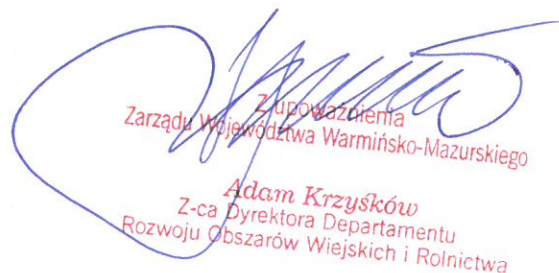 Z upoważnienia
Zarządu Województwa Warmińsko-Mazurskiego
Adam Krzyśków
Z-ca Dyrektora Departamentu
Rozwoju Obszarów Wiejskich i Rolnictwa